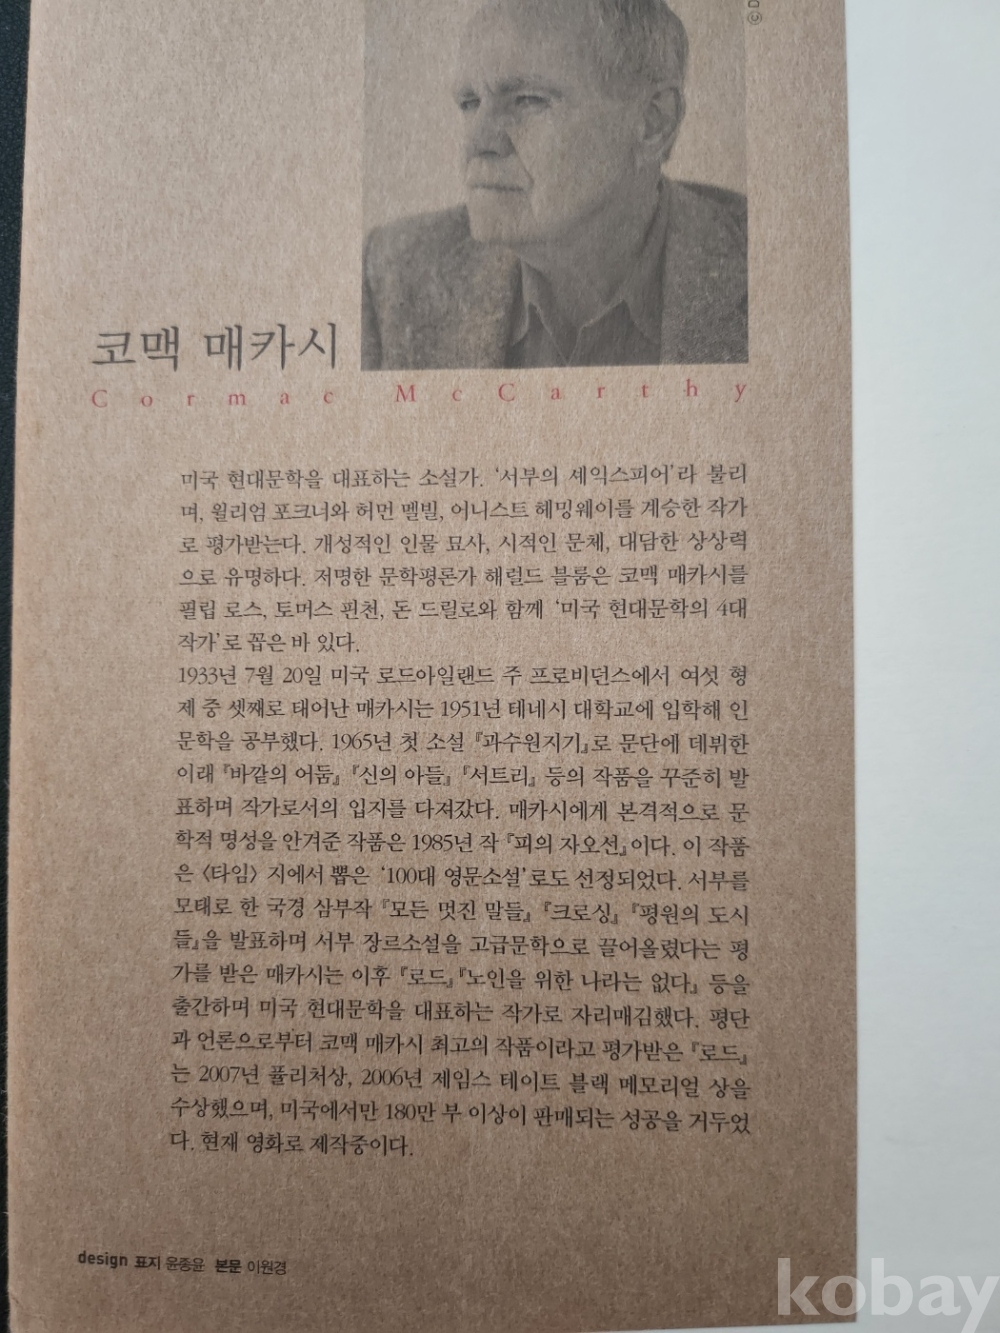 코맥 매카시
Cormac McCarthy
미국 현대문학을 대표하는 소설가. ‘서부의 셰익스피어’라 불리
며, 윌리엄 포크너와 허먼 멜빌, 어니스트 헤밍웨이를 계승한 작가
로 평가받는다. 개성적인 인물 묘사, 시적인 문체, 대담한 상상력
으로 유명하다. 저명한 문학평론가 해럴드 블룸은 코맥 매카시를
필립 로스, 토머스 핀천, 돈 드릴로와 함께 ‘미국 현대문학의 4대
작가’로 꼽은 바 있다.
1933년 7월 20일 미국 로드아일랜드 주 프로비던스에서 여섯 형
제 중 셋째로 태어난 매카시는 1951년 테네시 대학교에 입학해 인
문학을 공부했다. 1965년 첫 소설 『과수원지기』로 문단에 데뷔한
이래 『바깥의 어둠』 『신의 아들』 『서트리』 등의 작품을 꾸준히 발
표하며 작가로서의 입지를 다져갔다. 매카시에게 본격적으로 문
학적 명성을 안겨준 작품은 1985년 작 『피의 자오선』이다. 이 작품
은 〈타임〉 지에서 뽑은 ‘100대 영문소설’로도 선정되었다. 서부를
모태로 한 국경 삼부작 『모든 멋진 말들』 『크로싱』 『평원의 도시
들』을 발표하며 서부 장르소설을 고급문학으로 끌어올렸다는 평
가를 받은 매카시는 이후 『로드』 『노인을 위한 나라는 없다』 등을
출간하며 미국 현대문학을 대표하는 작가로 자리매김했다. 평단
과 언론으로부터 코맥 매카시 최고의 작품이라고 평가받은 『로드』
는 2007년 퓰리처상, 2006년 제임스 테이트 블랙 메모리얼 상을
수상했으며, 미국에서만 180만 부 이상이 판매되는 성공을 거두었
다. 현재 영화로 제작중이다.
design 표지 윤종윤 본문 이원경
kobay